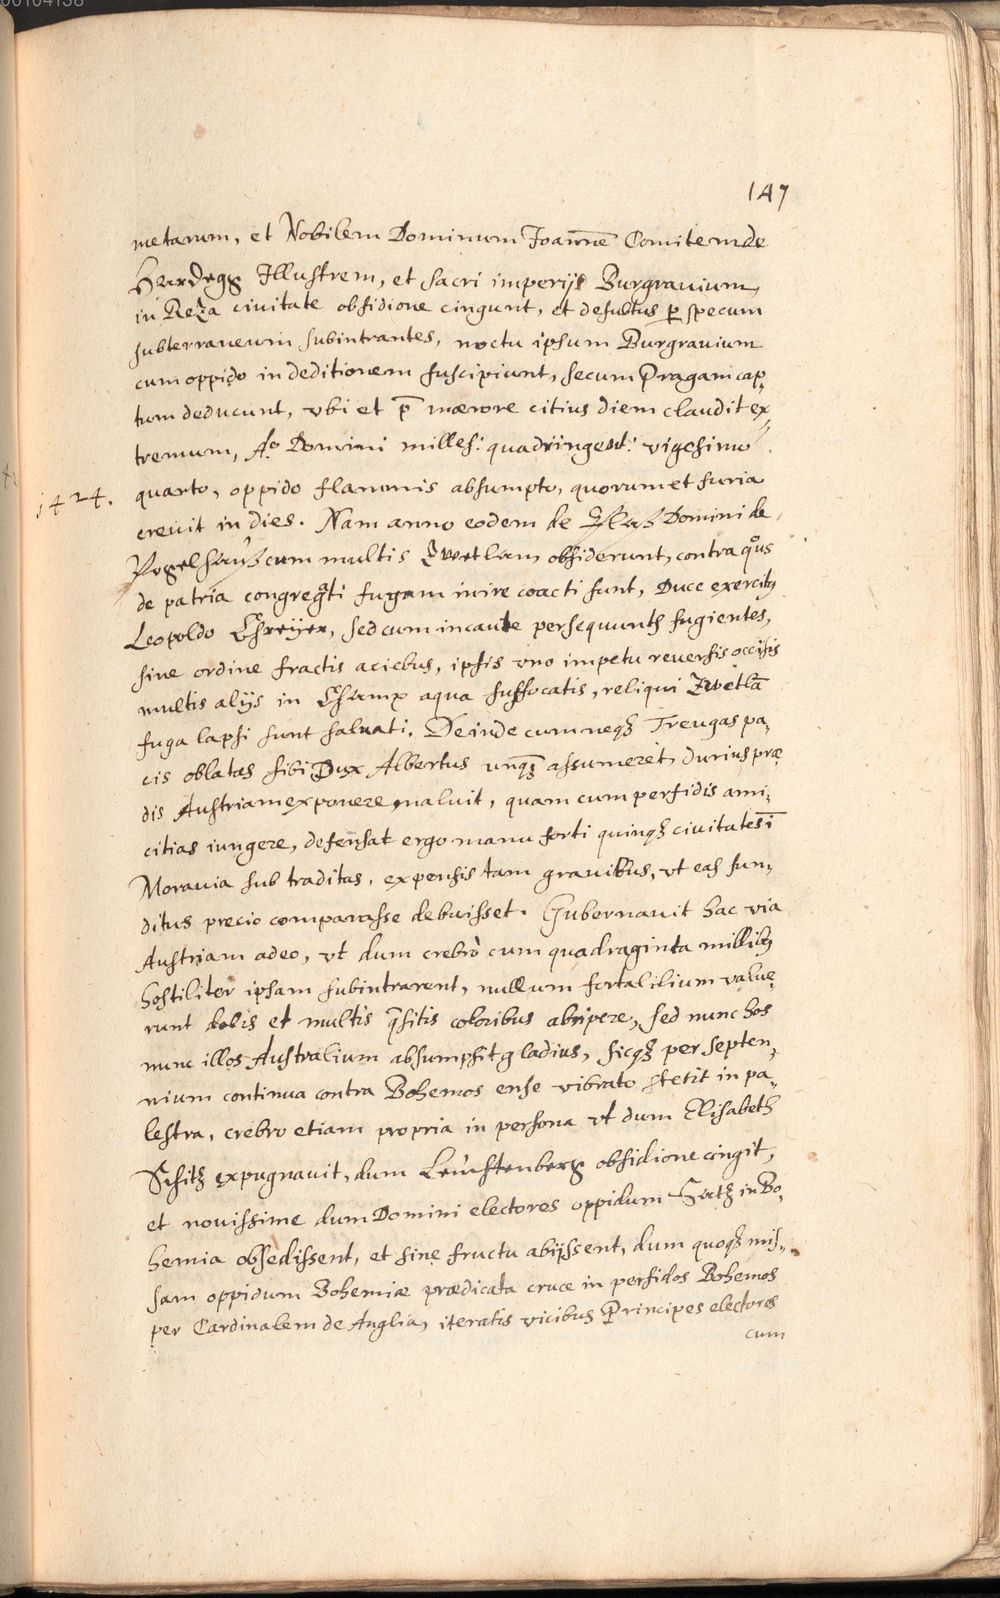 147
metarum, et Nobilem Dominum Joannē Comitem de
Hardegg Illustrem, et sacri imperijs Burgrauium,
in Reza ciuitate obsidione cingunt, et desuetus ꝑ specum
subterraneum subintrantes, noctu ipsum Burgrauium
cum oppido in deditionem suscipiunt, secum Pragam cap-
tum deducunt, vbi et p̄ mærore citius diem claudit ex
tremum, Aº Domini milles: quadringent: vigesimo
1424. quarto, oppido flammis absumpto, quorum et furia
creuit in dies. Nam anno eodem de Domini de
Vogelhauß cum multis Zwetlam obsiderunt, contra quos
de patria congregati fugam inire coacti sunt, Duce exercitꝫ
Leopoldo Chreijer, sed cum incaute persequuntꝫ fugientes,
sine ordine fractis aciebus, ipsis vno impetu reuersis occisis
multis alijs in Champ aqua suffocatis, reliqui Zwetlā
fuga lapsi sunt saluati. Deinde cum neqꝫ Treugas pa-
cis oblatas sibi Dux Albertus unqꝫ assumeret, durius præ
dis Austriam exponere maluit, quam cum perfidis ami-
citias iungere, defensat ergo manu forti quinqꝫ ciuitates ī
Morauia sub traditas, expensis tam grauibus, vt eas fun-
ditus precio comparasse debuisset. Gubernauit hac via
Austriam adeo, vt dum crebrò cum quadraginta millibꝫ
hostiliter ipsam subintrarent, nullum fortalilium value-
runt dolis et multis q̄sitis coloribus abripere, sed nunc hos
nunc illos Australium absumpsit gladius, sicqꝫ per septen-
nium continua contra Bohemos ense vibrato stetit in pa-
lestra, crebro etiam propria in persona vt dum Elisabeth
Schitꝫ expugnauit, dum Leuchstenberg obsidione cingit,
et nouissime dum Domini electores oppidum Satꝫ in Bo-
hemia obsedissent, et sine fructu abijssent, dum quoqꝫ mis-
sam oppidum Bohemiæ prædicata cruce in perfidos Bohemos
per Cardinalem de Anglia, iteratis vicibus Principes electores
cum